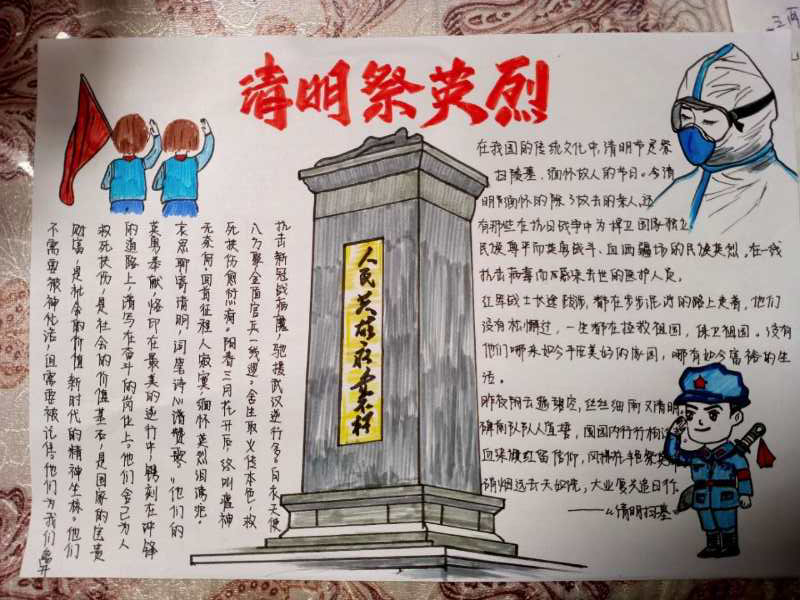 清明祭英烈
在我国的传统文化中,清明节是祭
扫陵墓、缅怀故人的节日。今清
明节缅怀的除了故去的亲人,还
有那些在抗日战争中为捍卫国家独立
民族尊严而英勇战斗、血洒疆场的民族英烈,在一线
抗击病毒而不幸去世的医护人员。
红军战士长途跋涉,都在步步泥泞的路上走着,他们
没有松懈过,一生都在拯救祖国,保卫祖国。没有
他们哪来如今平庄美好的家园,哪有如今富裕的生
活。
昨夜阴云
丝丝细雨又清明。
碑前队队人直誓,
国园内行行
血染旗红留信仰,风
硝烟远去天
大业复兴追日行
——《清明扫墓》
人民英雄永垂不朽
抗击新冠战病魔,驰援武汉逆行多。白衣天使
八万聚,全面官兵一线逻。舍生取义传本色,救
死扶伤愈
春三月花开后,
无奈何。回首征程人寂寞,缅怀英烈泪滂沱。
哀思聊寄清明,词笔诗心清赞歌。他们的
英勇奉献烙印在最美的逆行中,镌刻在冲锋
的道路上,清写在奋斗的岗位上。他们舍己为人
救死扶伤,是社会的价值基石,是国家的宝贵
财富,是社会的价值,新时代的精神坐标。他们
不需要被神化活,但需要被记住。他们为我们